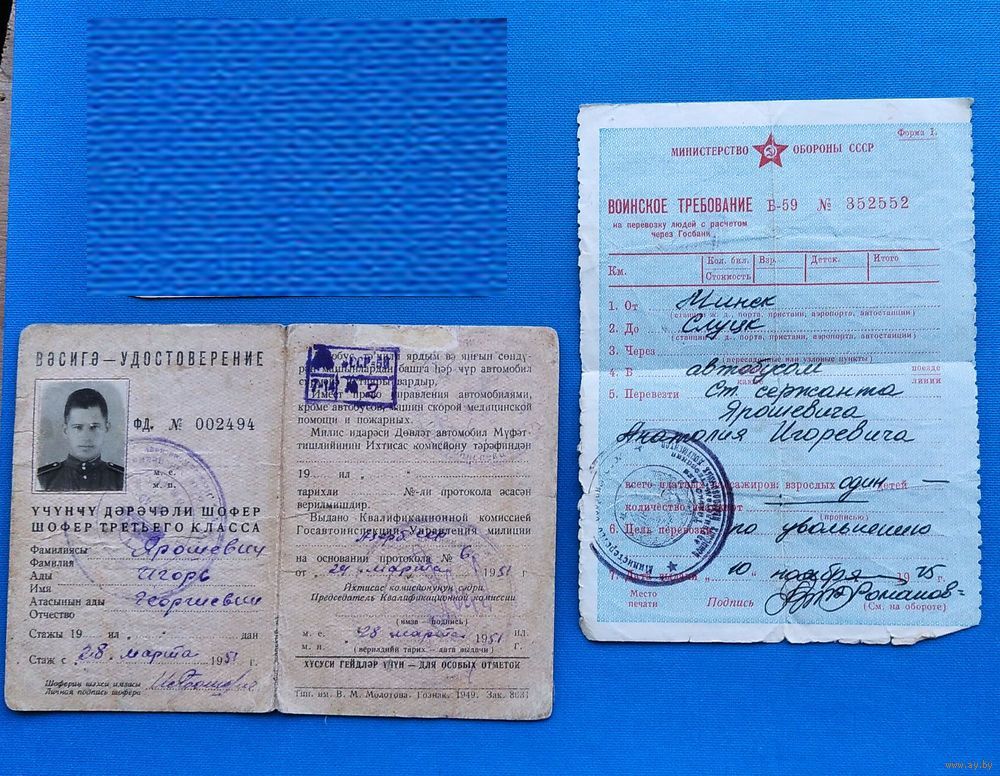 ВӘСИГӘ — УДОСТОВЕРЕНИЕ
ФД. № 002494
м. е.
м. п.
ҮЧҮНЧҮ ДӘРӘҸӘЛИ ШОФЕР
ШОФЕР ТРЕТЬЕГО КЛАССА
Фамилиясы
Фамилия Ярошевич
Ады
Имя Игорь
Атасынын ады
Отчество Георгиевич
Стажы 19 ил дан
Стаж с 28 марта 1951 г.
Шоферин шәхси имзасы
Личная подпись шофера
ярдым вә янғын сөндү-
башга һәр ҹүр автомобил
Имеет право управления автомобилями,
кроме автобусов, машин скорой медицинской
помощи и пожарных.
Милис идарәси Дөвләт автомобил Мүфәт-
тишлийинин Ихтисас комиссийону тәрәфиндән
19 ил " "
тарихли №-ли протокола әсасән
верилмишдир.
Выдано Квалификационной комиссией
Госавтоинспекции Управления милиции
на основании протокола № 6
от „ 24 марта 1951 г.
Ихтисас комиссиюнунун сәдри
Председатель Квалификационной комиссии
(имза — подпись)
м. е. 28 марта 1951 ил.
м. п. (верилдийи тарих — дата выдачи) г.
ХҮСУСИ ГЕЙДЛӘР ҮЧҮН — ДЛЯ ОСОБЫХ ОТМЕТОК
Тип. им. В. М. Молотова. Гознак. 1949. Зак. 8031
Форма 1.
МИНИСТЕРСТВО ОБОРОНЫ СССР
ВОИНСКОЕ ТРЕБОВАНИЕ Б-59 № 352552
на перевозку людей с расчетом
через Госбанк
Км. Кол. бил. Взр. Детск. Итого
Стоимость
1. От Минск
(станции ж. д., порта, пристани, аэропорта, автостанции)
2. До Слуцк
(станции ж. д., порта, пристани, аэропорта, автостанции)
3. Через
(пересадочные или узловые пункты)
4. В автобусом поезде
линии
5. Перевезти Ст. сержанта
Ярошевича
Анатолия Игоревича
всего платных пассажиров: взрослых один детей —
количество
(прописью)
6. Цель перевозки по увольнению
10 ноября 1975
Место
печати
Подпись Романов
(См. на обороте)
www.ay.by